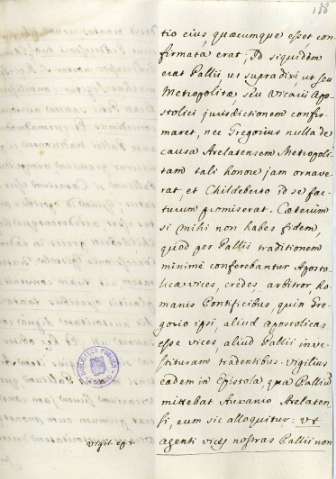 188
tio eius quæcumque esset con
firmata erat; Id siquidem
erat Pallii, ut supra dixi ut seu
Metropolitæ, seu Vicarii Apo
stolici jurisdictionem confir
maret, nec Gregorius nulla de
causa Arelatensem Metropoli
tam tali honore jam ornave
rat, et Childeberto id se fac
turum promiserat. Cæterum
si mihi non habes fidem,
quod per Pallii traditionem
minimè conferebantur Aposto
licæ vices, credes, arbitror, Ro
manis Pontificibus, quin Gre
gorio ipsi, aliud apostolicas
esse vices, aliud Pallii inve
stituram tradentibus. Vigilius
eadem in Epistola, qua Pallium
mittebat Auxanio Arelaten
si, eum sic alloquitur: Et
Vigil. ep.
agenti vices nostras Pallii non